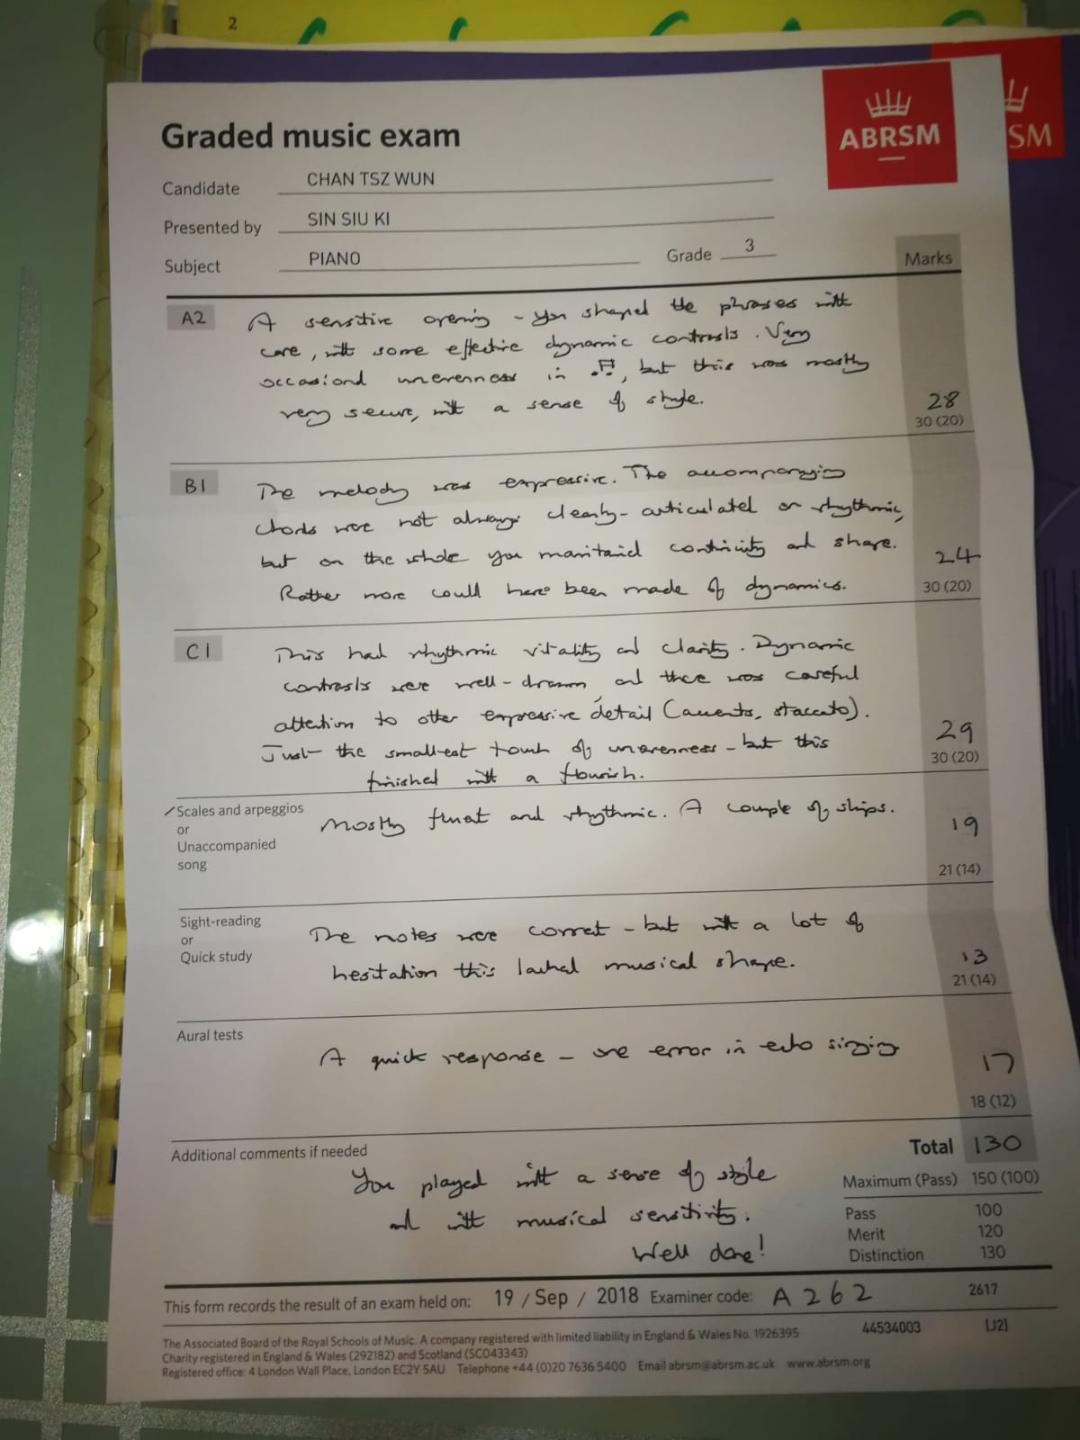 2
ABRSM
SM
Graded music exam
Candidate CHAN TSZ WUN
Presented by SIN SIU KI
Subject PIANO Grade 3
Marks
A2 A sensitive opening - you shaped the phrases with
care, with some effective dynamic contrasts. Very
occasional unevenness in ♫, but this was mostly
very secure, with a sense of style.
28
30 (20)
B1 The melody was expressive. The accompanying
chords were not always clearly-articulated or rhythmic,
but on the whole you maintained continuity and shape.
Rather more could have been made of dynamics.
24
30 (20)
C1 This had rhythmic vitality and clarity. Dynamic
contrasts were well-drawn, and there was careful
attention to other expressive detail (accents, staccato).
Just the smallest touch of unevenness - but this
finished with a flourish.
29
30 (20)
/Scales and arpeggios
or
Unaccompanied
song
Mostly fluent and rhythmic. A couple of slips.
19
21 (14)
Sight-reading
or
Quick study
The notes were correct - but with a lot of
hesitation this lacked musical shape.
13
21 (14)
Aural tests
A quick response - one error in echo singing
17
18 (12)
Additional comments if needed
You played with a sense of style
and with musical sensitivity.
Well done!
Total 130
Maximum (Pass) 150 (100)
Pass 100
Merit 120
Distinction 130
This form records the result of an exam held on: 19 / Sep / 2018 Examiner code: A 2 6 2 2617
44534003
The Associated Board of the Royal Schools of Music. A company registered with limited liability in England & Wales No. 1926395
Charity registered in England & Wales (292182) and Scotland (SC043343)
Registered office: 4 London Wall Place, London EC2Y 5AU Telephone +44 (0)20 7636 5400 Email abrsm@abrsm.ac.uk www.abrsm.org